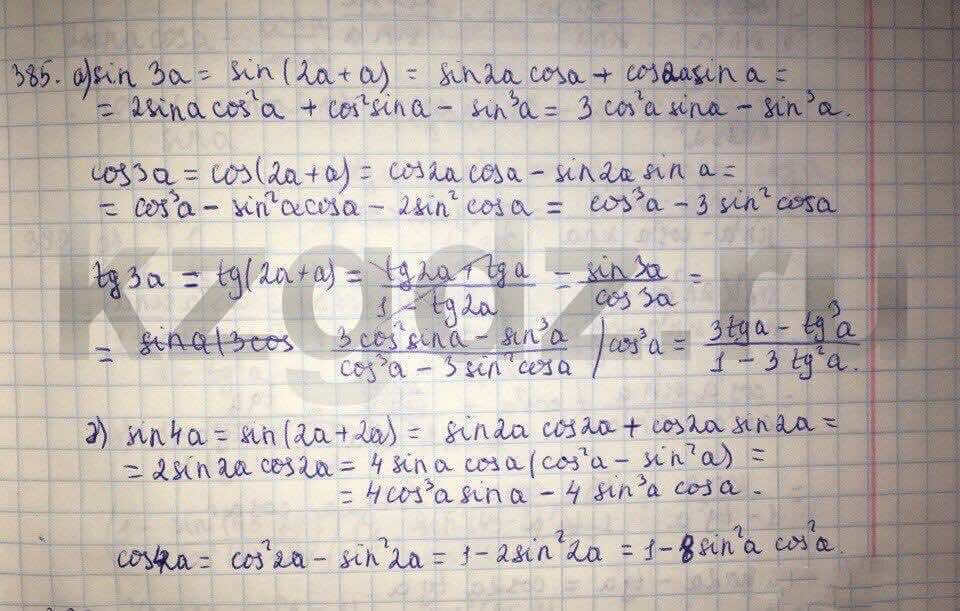 385. а) sin 3a = sin (2a + a) = sin2a cosa + cos2a sin a =
= 2sina cos²a + cos²sina - sin³a = 3 cos²a sina - sin³a.
cos3a = cos(2a+a) = cos2a cosa - sin2a sin a =
= cos³a - sin²a cosa - 2sin² cosa = cos³a - 3 sin² cosa
tg 3a = tg(2a+a) = tg2a + tga / 1 - tg2a = sin 3a / cos 3a =
= sina(3cos 3 cos²sina - sin³a / cos³a - 3 sin²cosa / cos³a = 3tga - tg³a / 1 - 3 tg²a.
г) sin4a = sin(2a+2a) = sin2a cos2a + cos2a sin2a =
= 2sin2a cos2a = 4sina cosa(cos²a - sin²a) =
= 4cos³a sina - 4 sin³a cosa.
cos4a = cos²2a - sin²2a = 1 - 2sin²2a = 1 - 8sin²a cos²a.
kzgdz.ru